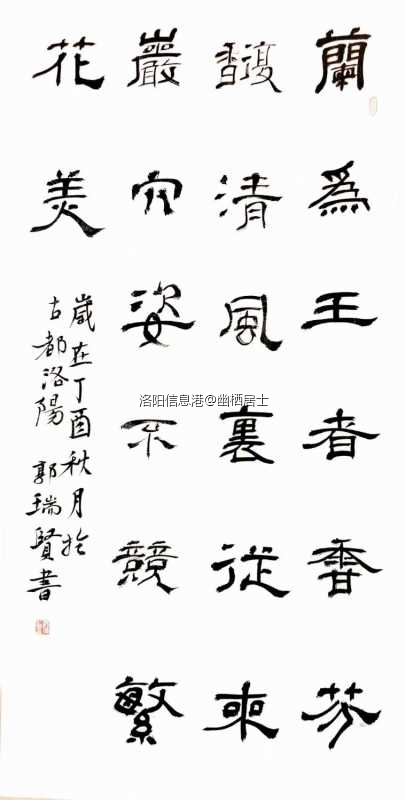 蘭為王者香芬
馥清風裏從來
巖穴姿不競繁
花美
歲在丁酉秋月於
古都洛陽 郭瑞賢書
洛阳信息港@幽栖居士